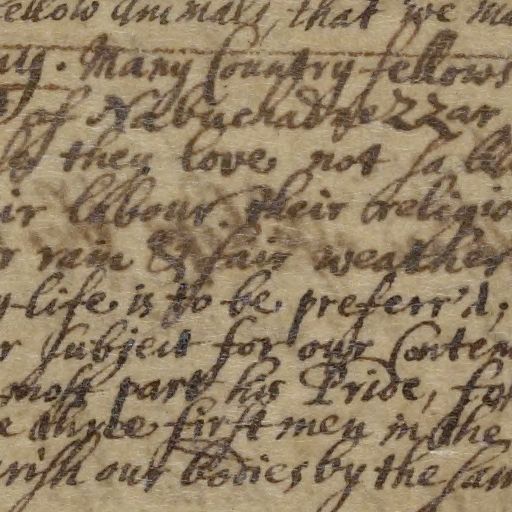 fellow Animals, that we ma
Many Country fellows
of Nabuchadnezzar
they love not sa
ir labour. their religio
r rain & fair weather
life is to be preferr'd;
r subject for our Contem
most part his Pride, for
three first men in the
rish our bodies by the sam